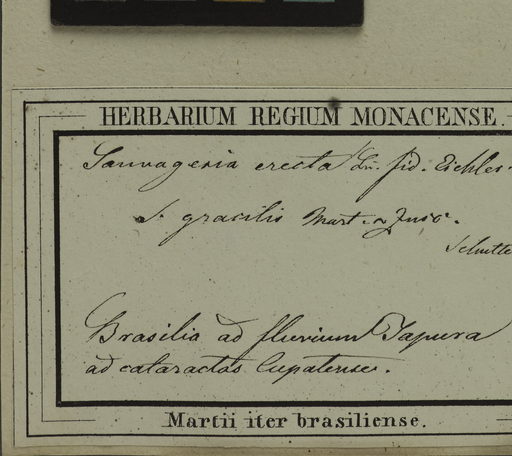 HERBARIUM REGIUM MONACENSE.
Sauvagesia erecta Lin. fid. Eichler
S. gracilis Mart. & Zucc.
Brasilia ad fluvium Japura
ad cataractas Cupatenses.
Martii iter brasiliense.